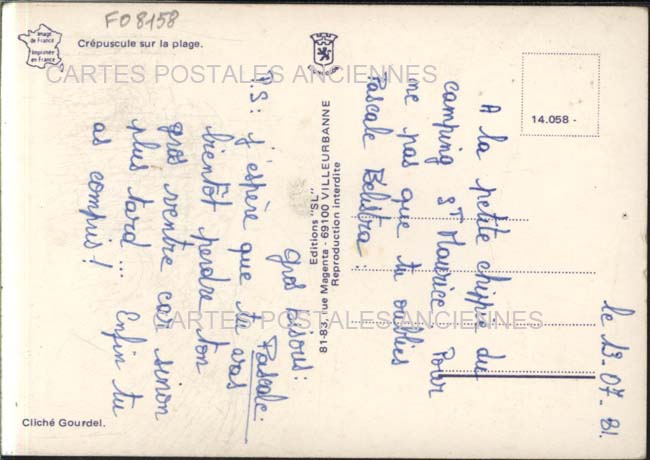 FO 8158
Image
de France
Imprimée
en France
Crépuscule sur la plage.
CARTES POSTALES ANCIENNES
14.058 -
le 13-07-81.
A la petite chyppie du
camping St Maurice. Pour
me pas que tu oublies
Pascale
Editions "SL"
81-83, rue Magenta - 69100 VILLEURBANNE
Reproduction interdite
gros bisous:
Pascale.
P.S: j'espère que tu vas
bientôt perdre ton
gros ventre car sinon
plus tard... Enfin tu
as compris!
CARTES POSTALES ANCIENNES
Cliché Gourdel.